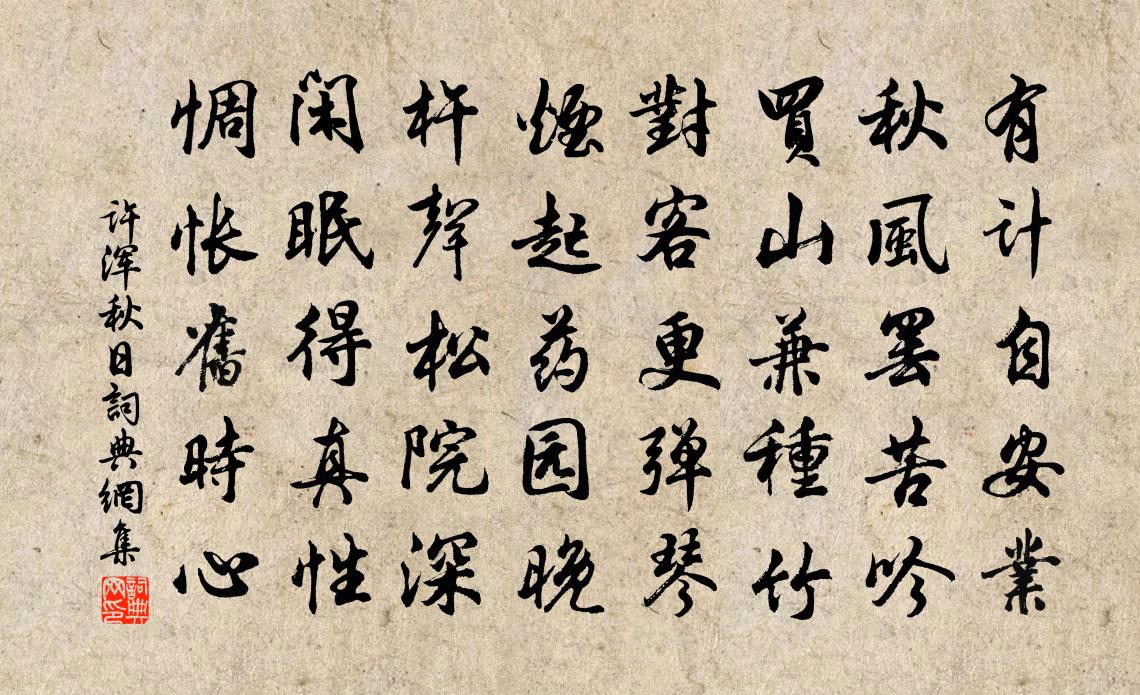 有计自安業
秋風罢苦吟
買山兼種竹
對客更弹琴
煙起药园晚
杵聲松院深
闲眠得真性
惆怅舊時心
许浑秋日詞典網集
詞典网印